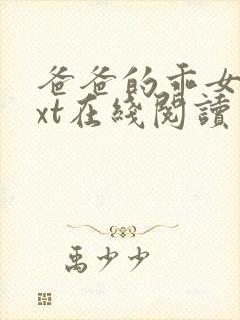 爸爸的乖女
xt在綫閱讀
禹少少